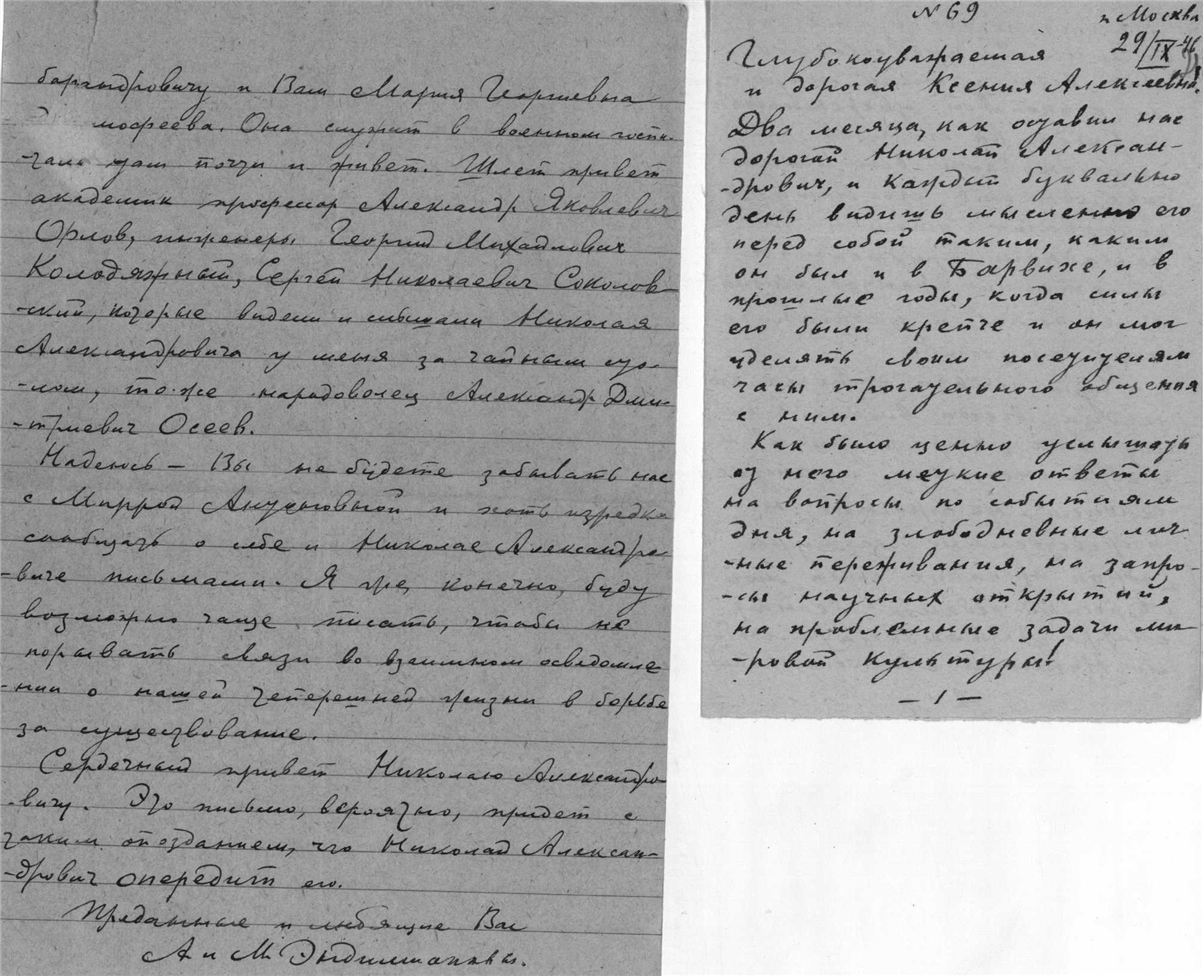 боргандровичу и Вам Мария Георгиевна
мофеева. Она служит в военном госпи-
-тале там почти и живет. Шлет привет
академик профессор Александр Яковлевич
Орлов, инженеры Георгий Михайлович
Колодяжный, Сергей Николаевич Соколов-
-ский, которые видели и слышали Николая
Александровича у меня за чайным сто-
-лом, то-же народоволец Александр Дми-
-триевич Осеев.
Надеюсь – Вы не будете забывать нас
с Миррой и хоть изредка
сообщать о себе и Николае Александро-
-виче письмами. Я же, конечно, буду
возможно чаще писать, чтобы не
порывать связи во взаимном осведомле-
-нии о нашей теперешней жизни в борьбе
за существование.
Сердечный привет Николаю Александро-
-вичу. Это письмо, вероятно, придет с
таким опозданием, что Николай Алексан-
-дрович опередит его.
Преданные и любящие Вас
А и М.
N 69
г. Москва
29/IX-46
Глубокоуважаемая
и дорогая Ксения Алексеевна!
Два месяца, как оставил нас
дорогой Николай Алексан-
-дрович, и каждый буквально
день видишь мысленно его
перед собой таким, каким
он был и в Барвихе, и в
прошлые годы, когда силы
его были крепче и он мог
уделять своим посетителям
часы трогательного общения
с ним.
Как было ценно услышать
от него меткие ответы
на вопросы по событиям
дня, на злободневные лич-
-ные переживания, на запро-
-сы научных открытий,
на проблемные задачи ми-
-ровой культуры!
– 1 –